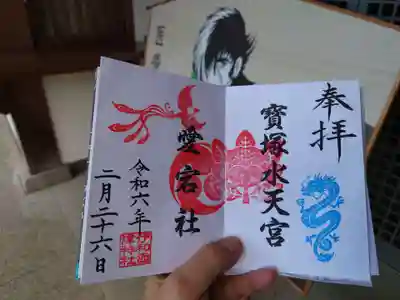 奉拝
寶塚水天宮
愛宕社
令和六年
二月二十六日